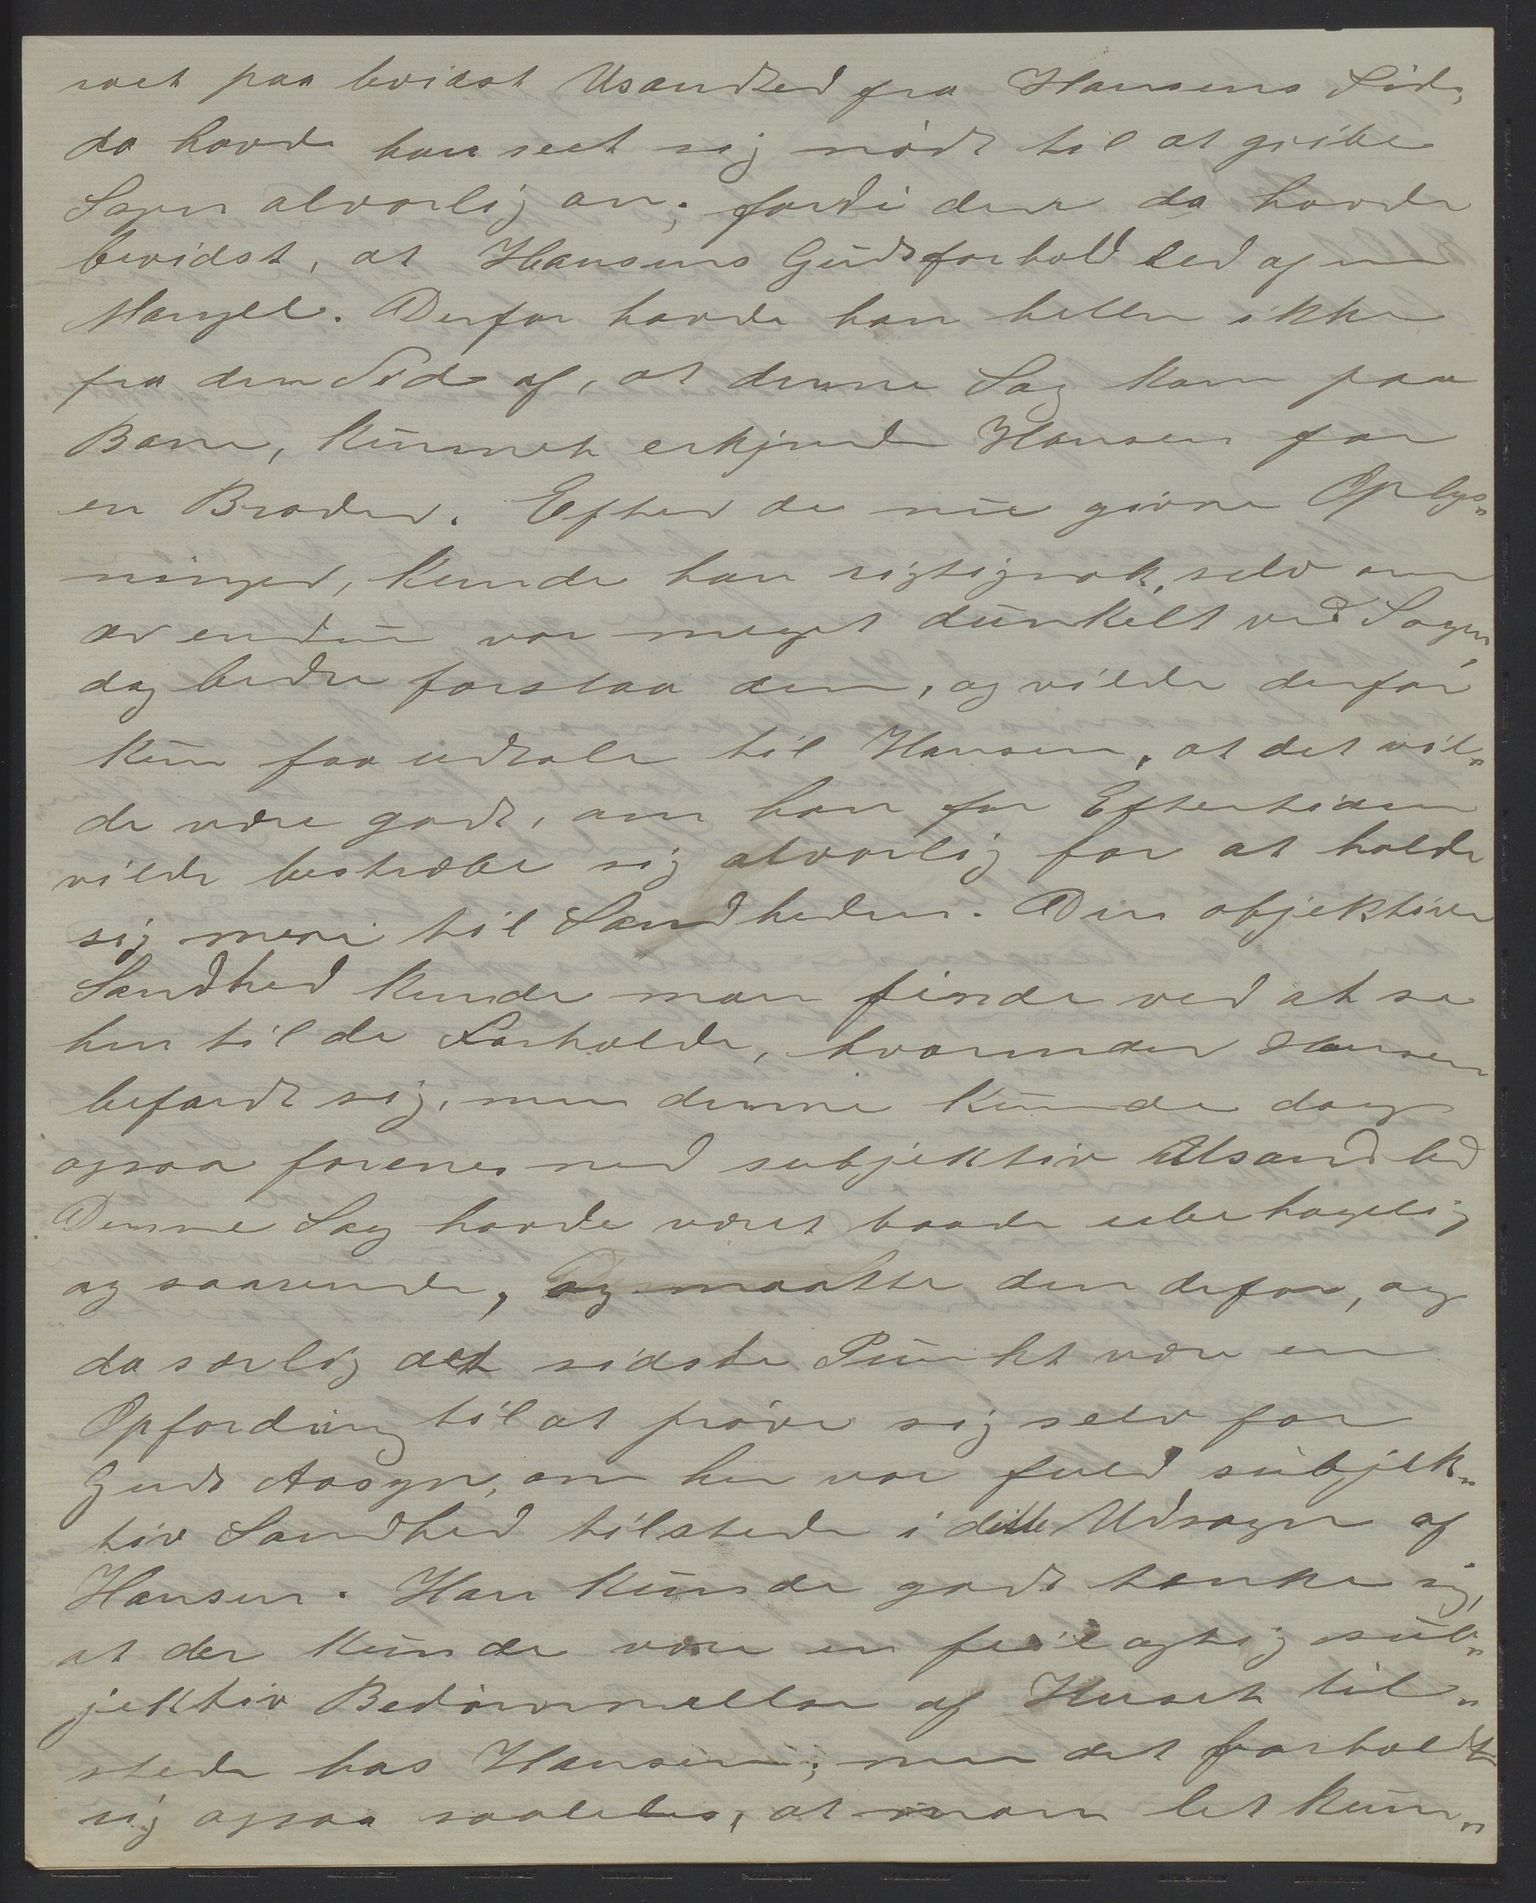 voet paa bevidst Usandhed fra Hansens Side,
da havde han seet sig nødt til at gribe
Sagen alvorlig an; fordi dene da havde
bevidst, at Hansens Gudsforhold led af en
Mangel. Derfor havde han heller ikke
fra den Side af, at denne Sag kom paa
Bane, kunnet erkjende Hansen for
en Broder. Efter de nu givne Oplys„
ninger, kunde han rigtignok, selv om
er endnu var meget dunkelt ved Sagen,
dog bedre forstaa den, og vilde derfor
kun faa udtale til Hansen, at det vil„
de være godt, om han for Eftertiden
vilde bestræbe sig alvorlig for at holde
sig mere til Sandheden. Den objektive
Sandhed kunde man finde ved at se
hen til de Forholde, hvorunder Hansen
befandt sig, men denne kunde dog
ogsaa forenes med subjektiv Usandhed
Denne Sag havde været baade ubehagelig
og saarende, og maatte den derfor, og
da særlig det sidste Punkt være en
Opfordring til at prøve sig selv for
Guds Aasyn, om her var fuld subjek„
tiv Sandhed tilstede i dette Udsagn af
Hansen. Han kunde godt tænke sig,
at der kunde være en feilagtig sub„
jektiv Bedømmelse af Huset til„
stede hos Hansen; men det forholdt
sig ogsaa saaledes, at man let kun„